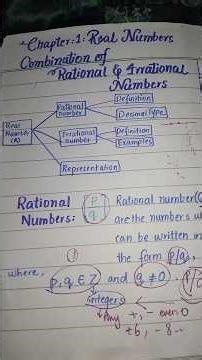 Chapter:1: Real Numbers
Combination of
Rational & Irrational
Numbers
Real Numbers (R)
Rational number
Definition
Decimal Type
Irrational number
Definition
Examples
Representation
Rational Numbers: (p/q)
Rational number(Q
are the numbers w
can be written in
the form p/q,
where, p, q ∈ Z and q ≠ 0
integers
Any +, -
+6, -8